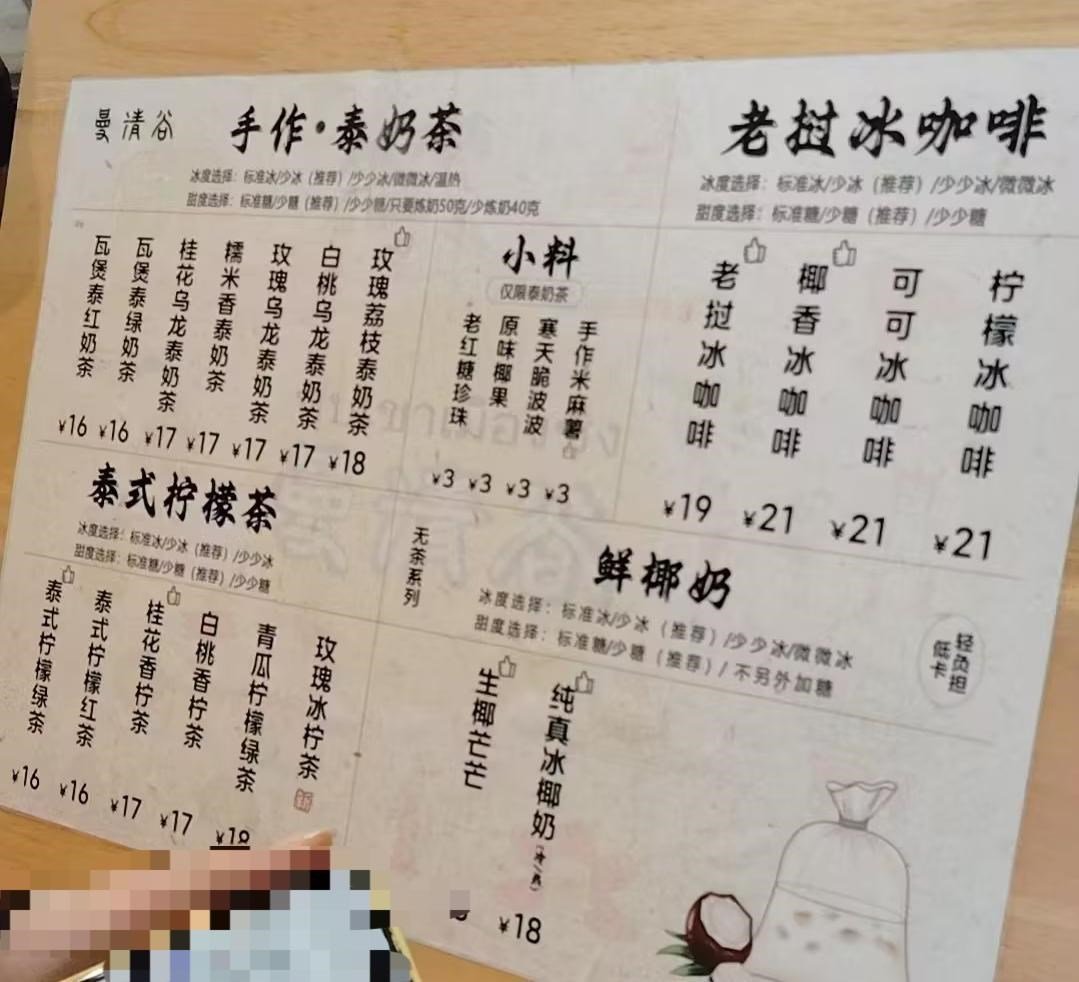 曼清谷
手作·泰奶茶
冰度选择：标准冰/少冰（推荐）/少少冰/微微冰/温热
甜度选择：标准糖/少糖（推荐）/少少糖/只要炼奶50克/少炼奶40克
瓦煲泰红奶茶
¥16
瓦煲泰绿奶茶
¥16
桂花乌龙泰奶茶
¥17
糯米香泰奶茶
¥17
玫瑰乌龙泰奶茶
¥17
白桃乌龙泰奶茶
¥17
玫瑰荔枝泰奶茶
¥18
小料
仅限泰奶茶
老红糖珍珠
¥3
原味椰果
¥3
寒天脆波波
¥3
手作米麻薯
¥3
老挝冰咖啡
冰度选择：标准冰/少冰（推荐）/少少冰/微微冰
甜度选择：标准糖/少糖（推荐）/少少糖
老挝冰咖啡
¥19
椰香冰咖啡
¥21
可可冰咖啡
¥21
柠檬冰咖啡
¥21
泰式柠檬茶
冰度选择：标准冰/少冰（推荐）/少少冰
甜度选择：标准糖/少糖（推荐）/少少糖
泰式柠檬绿茶
¥16
泰式柠檬红茶
¥16
桂花香柠茶
¥17
白桃香柠茶
¥17
青瓜柠檬绿茶
¥18
玫瑰冰柠茶
新
无茶系列
鲜椰奶
冰度选择：标准冰/少冰（推荐）/少少冰/微微冰
甜度选择：标准糖/少糖（推荐）/不另外加糖
轻负担
低卡
生椰芒芒
纯真冰椰奶
¥18